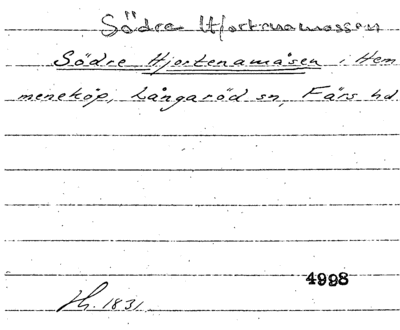 Södre Hjortenamossen
Södre Hjortenamåsen, Hem
meneköp, Långaröd sn, Färs hd
4998
Hy. 1831